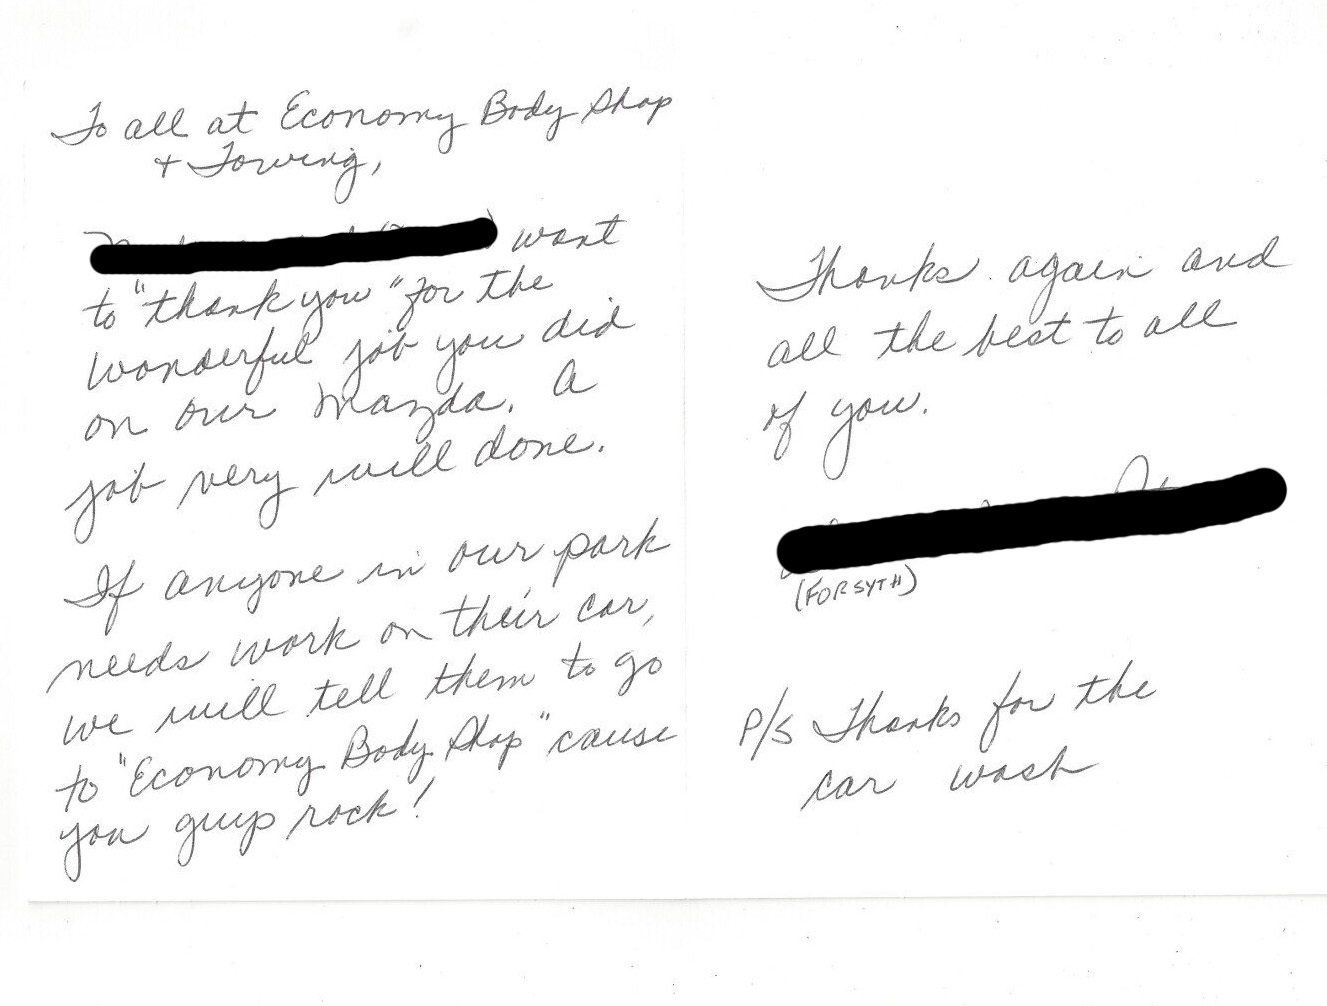 To all at Economy Body Shop
+ Towing,
want
to "thank you" for the
wonderful job you did
on our Mazda. A
job very well done.
If anyone in our park
needs work on their car,
we will tell them to go
to "Economy Body Shop" cause
you guys rock!
Thanks again and
all the best to all
of you.
(FORSYTH)
P/S Thanks for the
car wash